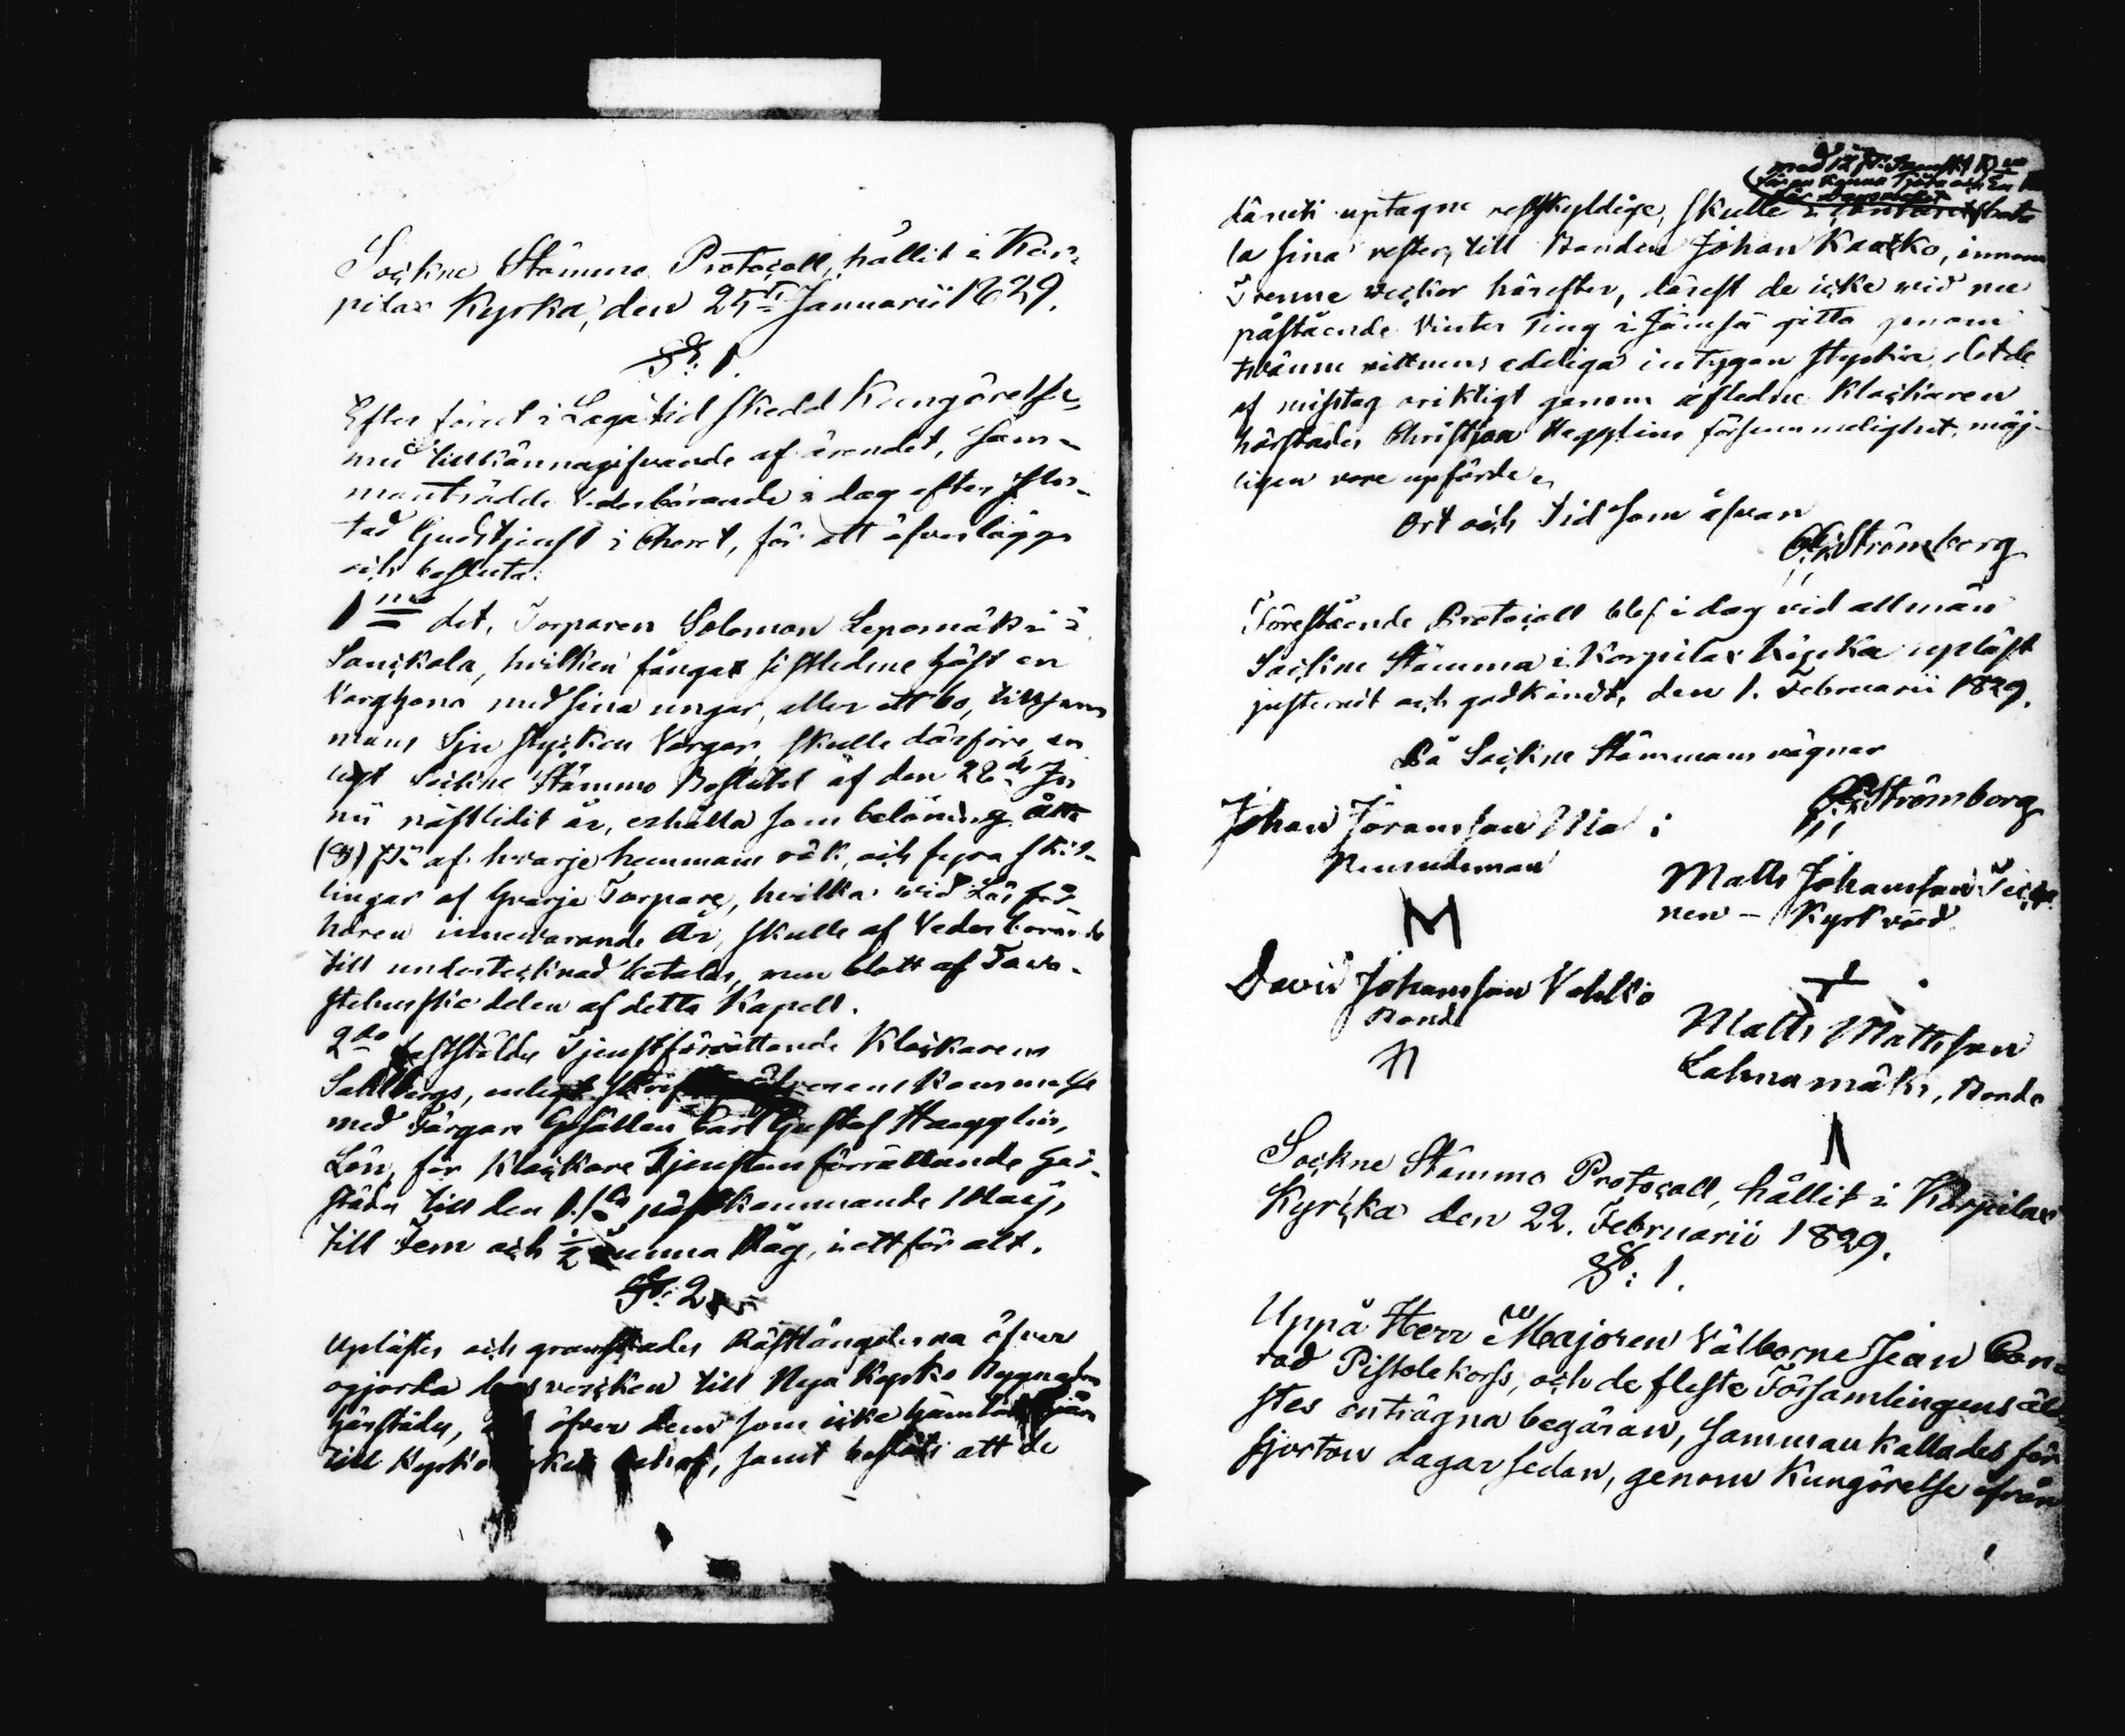 Sockne Stämmo Protocoll, hållit i Kor-
pilax Kyrka, den 25te Januarii 1829.
§: 1.
Efter förut i Laga tid skedd Kungörelse,
med tillkännagifvande af ärendet, sam-
manträdde Vederbörande i dag efter slu-
tad Gudstjenst i Choret, för att öfverlägga
och besluta:
1mo det, Torparen Salomon Lepomäki i
Sauckola, hvilken fångat sistledne höst en
Varghona med sina ungar, eller ett bo, tillsam
mans Sju stycken Vargar, skulle därföre, en
ligt Sockne Stämmo Beslutet af den 22de Ju
nii nästlidit år, erhålla som belöning åtta
(8) af hvarje hemmans rök, och fyra skil-
lingar af hvarje Torpare, hvilka vid
innevarande År, skulle af Vederbörande
till undertecknad betalas, men blott af Tava-
stehusska delen af detta Kapell.
2do fastställdes Tjenstförrättande Klockarens
Sahlbergs, enligt öfverenskommelse
med Färgare Gesällen Carl Gustaf Haegglin,
Lön, för Klockare Tjenstens förrättande här-
städes till den 1sta nästkommande Maij,
till Fem och ½ Tunna Råg, i ett för alt.
§: 2
Uplästes och granskades Rästlängderna öfver
ogjorda dagsvercken till Nya Kyrko Byggnaden
härstädes, öfver dem som icke hämtat
till Kyrko behof, samt beslöts att de
med
för en Kanna Tjära och En
däruti uptagne restskyldige, skulle betala
la sina rester, till Bonden Johan Kaakko, innom
Trenne veckor härefter, därest de icke vid nu
påstående Vinter Ting i Jämsä gitta genom
tvänne vittnens edeliga intygan styrka, det de
af misstag oriktigt genom afledne Klockaren
härstädes Christian Hegglins försummelighet, möj-
ligen vore upförde.
Ort och tid som åfvan
Strömborg
Förestående Protocoll blef i dag vid allmän
Sockne Stämma i Korpilax Kyrka upläst
justerat och godkändt, den 1. Februarii 1829.
På Sockne Stämmans vägnar
Strömborg
Johan Göransson
Nemndeman
Matts Johansson
nen – Kyrkvärd
M
David Johansson Vehkò
Bonde
Matts Mattsson
Lahnamäki, Bonde
Sockne Stämmo Protocoll, hållit i Korpilax
Kyrcka den 22. Februarii 1829.
§: 1.
Uppå Herr Majoren Välborne Jean Con-
rad Pistolekors, och de fleste Församlingens äl
stes enträgna begäran, sammankallades för
fjorton dagar sedan, genom Kungörelse ifrån